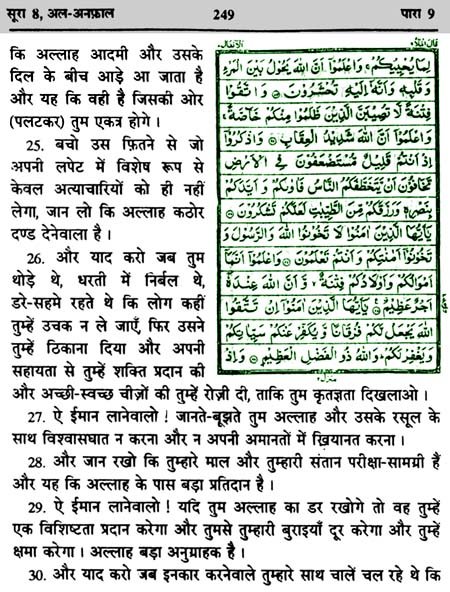 सूरा 8, अल-अनफ़ाल 249 पारा 9
कि अल्लाह आदमी और उसके
दिल के बीच आड़े आ जाता है
और यह कि वही है जिसकी ओर
(पलटकर) तुम एकत्र होगे ।
25. बचो उस फ़ितने से जो
अपनी लपेट में विशेष रूप से
केवल अत्याचारियों को ही नहीं
लेगा, जान लो कि अल्लाह कठोर
दण्ड देनेवाला है ।
26. और याद करो जब तुम
थोड़े थे, धरती में निर्बल थे,
डरे-सहमे रहते थे कि लोग कहीं
तुम्हें उचक न ले जाएँ, फिर उसने
तुम्हें ठिकाना दिया और अपनी
सहायता से तुम्हें शक्ति प्रदान की
और अच्छी-स्वच्छ चीज़ों की तुम्हें रोज़ी दी, ताकि तुम कृतज्ञता दिखलाओ ।
27. ऐ ईमान लानेवालो ! जानते-बूझते तुम अल्लाह और उसके रसूल के
साथ विश्वासघात न करना और न अपनी अमानतों में ख़ियानत करना ।
28. और जान रखो कि तुम्हारे माल और तुम्हारी संतान परीक्षा-सामग्री हैं
और यह कि अल्लाह के पास बड़ा प्रतिदान है ।
29. ऐ ईमान लानेवालो ! यदि तुम अल्लाह का डर रखोगे तो वह तुम्हें
एक विशिष्टता प्रदान करेगा और तुमसे तुम्हारी बुराइयाँ दूर करेगा और तुम्हें
क्षमा करेगा । अल्लाह बड़ा अनुग्राहक है ।
30. और याद करो जब इनकार करनेवाले तुम्हारे साथ चालें चल रहे थे कि
الانفال ٨ قال الملأ ٩
لِمَا يُحْيِيكُمْ وَاعْلَمُوٓا اَنَّ اللّٰهَ يَحُوْلُ بَيْنَ الْمَرْءِ
وَقَلْبِهٖ وَاَنَّهٗٓ اِلَيْهِ تُحْشَرُوْنَ وَاتَّقُوْا
فِتْنَةً لَّا تُصِيْبَنَّ الَّذِيْنَ ظَلَمُوْا مِنْكُمْ خَآصَّةً
وَاعْلَمُوٓا اَنَّ اللّٰهَ شَدِيْدُ الْعِقَابِ وَاذْكُرُوٓا
اِذْ اَنْتُمْ قَلِيْلٌ مُّسْتَضْعَفُوْنَ فِي الْاَرْضِ
تَخَافُوْنَ اَنْ يَّتَخَطَّفَكُمُ النَّاسُ فَاٰوٰىكُمْ وَاَيَّدَكُمْ
بِنَصْرِهٖ وَرَزَقَكُمْ مِّنَ الطَّيِّبٰتِ لَعَلَّكُمْ تَشْكُرُوْنَ
يٰٓاَيُّهَا الَّذِيْنَ اٰمَنُوْا لَا تَخُوْنُوا اللّٰهَ وَالرَّسُوْلَ وَ
تَخُوْنُوٓا اَمٰنٰتِكُمْ وَاَنْتُمْ تَعْلَمُوْنَ وَاعْلَمُوٓا اَنَّمَآ
اَمْوَالُكُمْ وَاَوْلَادُكُمْ فِتْنَةٌ وَّاَنَّ اللّٰهَ عِنْدَهٗٓ
اَجْرٌ عَظِيْمٌ يٰٓاَيُّهَا الَّذِيْنَ اٰمَنُوٓا اِنْ تَتَّقُوا
اللّٰهَ يَجْعَلْ لَّكُمْ فُرْقَانًا وَّيُكَفِّرْ عَنْكُمْ سَيِّاٰتِكُمْ
وَيَغْفِرْ لَكُمْ وَاللّٰهُ ذُو الْفَضْلِ الْعَظِيْمِ وَاِذْ